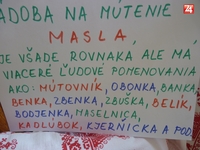 ÁDOBA NA MÚTENIE
MASLA,
JE VŠADE ROVNAKÁ ALE MÁ
VIACERÉ ĽUDOVÉ POMENOVANIA
AKO: MÚTOVNÍK, OBONKA, BANKA
BENKA, ZBENKA, ZBUŠKA, BELÍK,
BODJENKA, MASELNICA,
KADLÚBOK, KJERŇIČKA A POD.
24